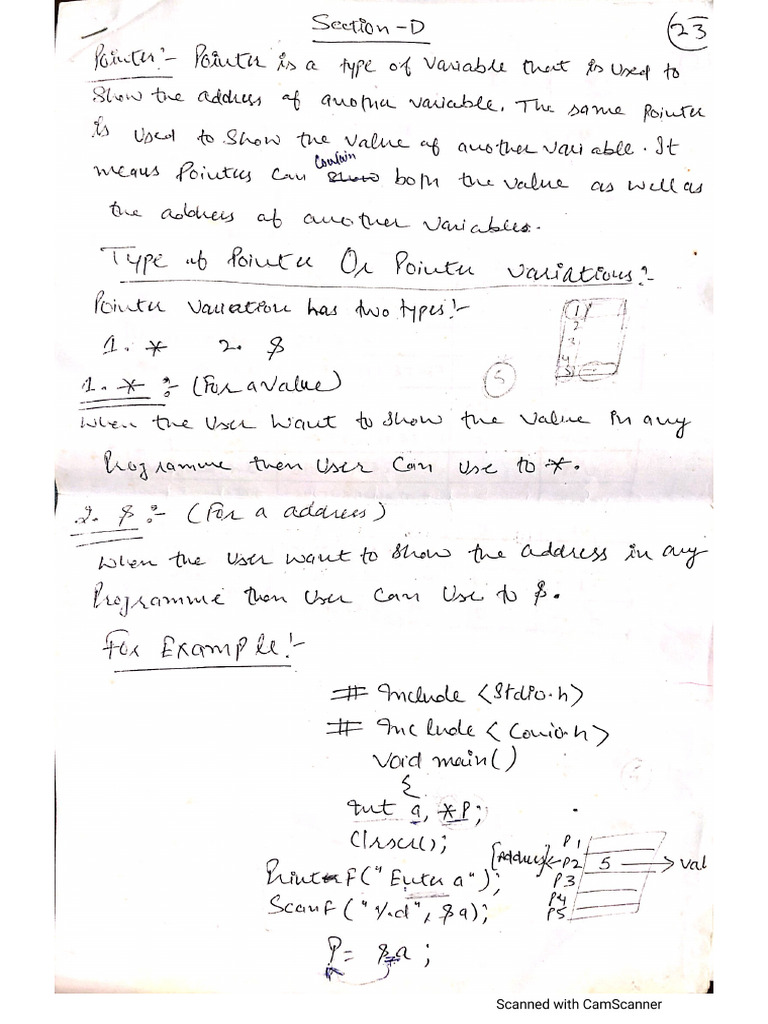 Section-D
23
Pointer:- Pointer is a type of variable that is used to
show the address of another variable. The same Pointer
is used to show the value of another variable. It
means Pointers can contain both the value as well as
the address of another variables.
Type of Pointer Or Pointer variations:-
Pointer variation has two types:-
1. * 2. $
1
2
3
4
5
5
1. * :- (For a value)
When the User want to show the value in any
Programme then User can use to *.
2. $ :- (For a address)
When the User want to show the address in any
Programme then User can use to $.
For Example:-
# Include <stdio.h>
# Include <conio.h>
void main()
{
Int a, *P;
Clrscr();
Printf("Enter a");
Scanf("%d", $a);
P = $a;
[Address]
P1
P2 5 → val
P3
P4
P5
Scanned with CamScanner